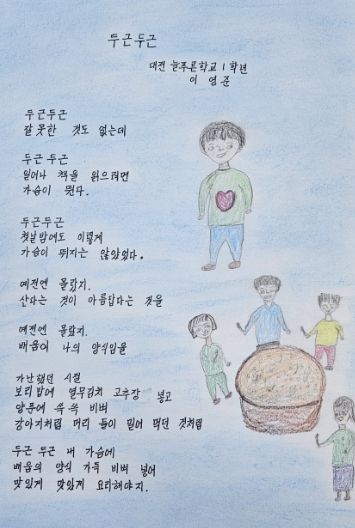 두근두근
대전 늘푸른학교 1학년
이영준
두근두근
잘못한 것도 없는데
두근두근
일어나 책을 읽으려면
가슴이 뛴다.
두근두근
첫날밤에도 이렇게
가슴이 뛰지는 않았었다.
예전엔 몰랐지.
산다는 것이 아름답다는 것을
예전엔 몰랐지.
배움이 나의 양식임을
가난했던 시절
보리밥에 열무김치 고추장 넣고
양푼에 쓱쓱 비벼
강아지처럼 머리 들이 밀어 먹던 것처럼
두근두근 내 가슴에
배움의 양식 가득 비벼 넣어
맛있게 맛있게 요리해야지.